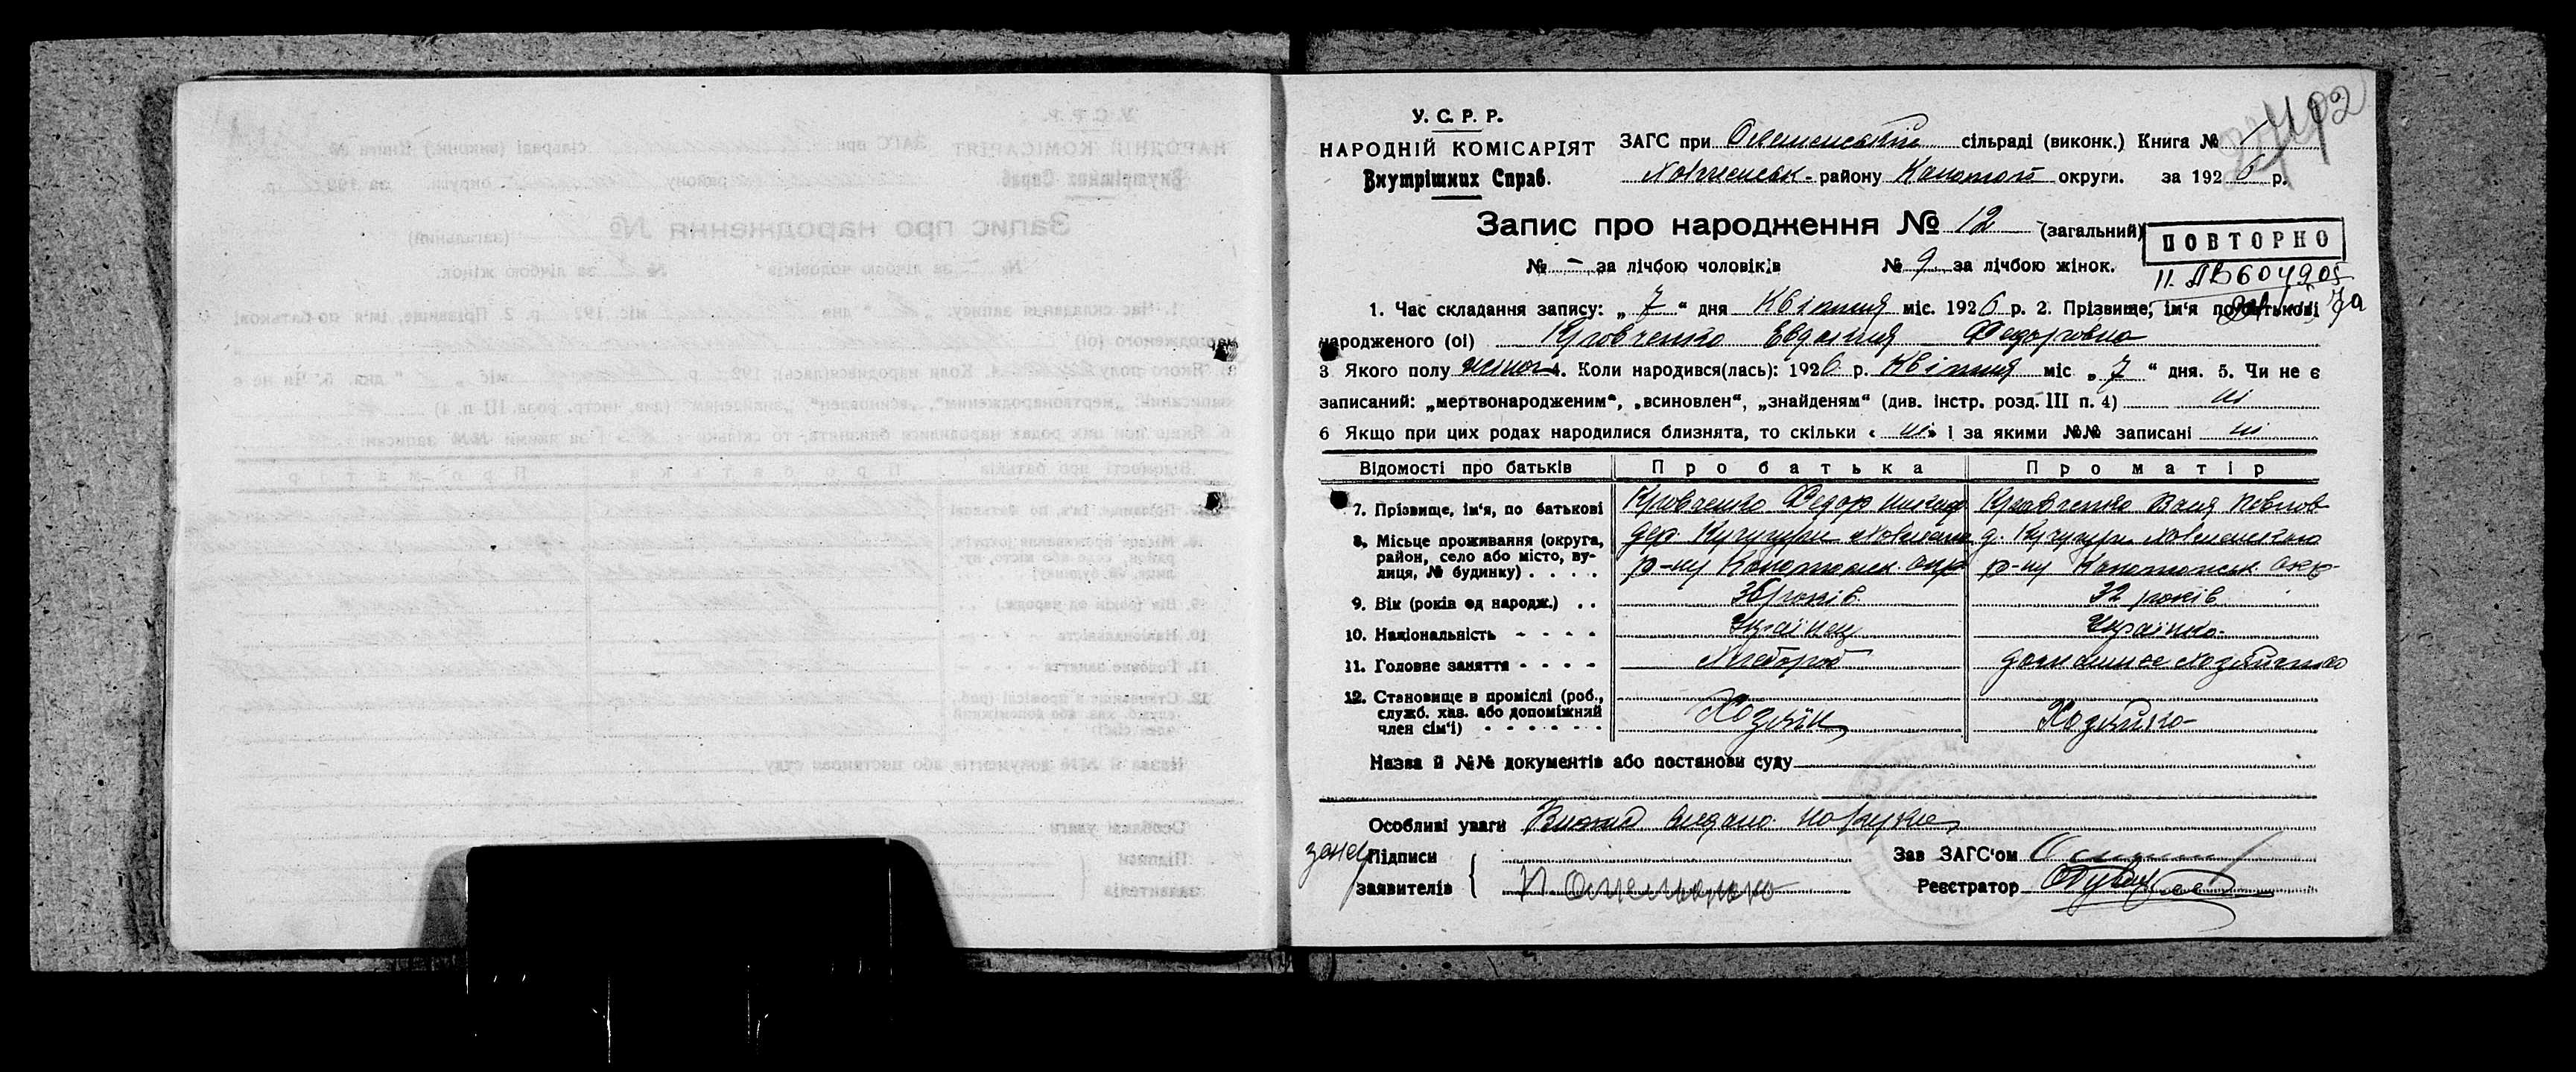 У. С. Р. Р.
НАРОДНІЙ КОМІСАРІЯТ
Внутрішних Справ.
ЗАГС при сільраді (виконк.) Книга №
району Конотоп округи. за 1926 р.
Запис про народження № 12 (загальний)
ПОВТОРНО
№ - за лічбою чоловіків № 9 за лічбою жінок.
1. Час складання запису: „ 7 “ дня Квітня міс. 1926 р. 2. Прізвище, ім'я по батькові
народженого (ої) Кровченко Евдокия Федоровна
3 Якого полу жіноч 4. Коли народився(лась): 1926 р. Квітня міс „ 7 “ дня. 5. Чи не є
записаний: „мертвонародженим“, „всиновлен“, „знайденям“ (див. інстр. розд. III п. 4) ні
6 Якщо при цих родах народилися близнята, то скільки « ні » і за якими №№ записані ні
Відомості про батьків Про батька Про матір
7. Прізвище, ім'я, по батькові Кровченко Федор Кравченко
8. Місьце проживання (округа, район, село або місто, вулиця, № будинку) . . . .
р-ну Конотопск. окр р-ну Конотопськ. окр-
9. Вік (років од народж.) . . 36 років 32 років
10. Національність - - - - Українец Українка
11. Головне заняття - - - - Хлебороб домашнее хозяйство
12. Становище в промислі (роб., служб. хаз. або допоміжний член сім'ї) - - - - - - Хозяїн Хозяйка
Назва й №№ документів або постанови суду
Особливі уваги видано на руки
Підписи Зав ЗАГС'ом
заявителів П Омельченко Реєстратор